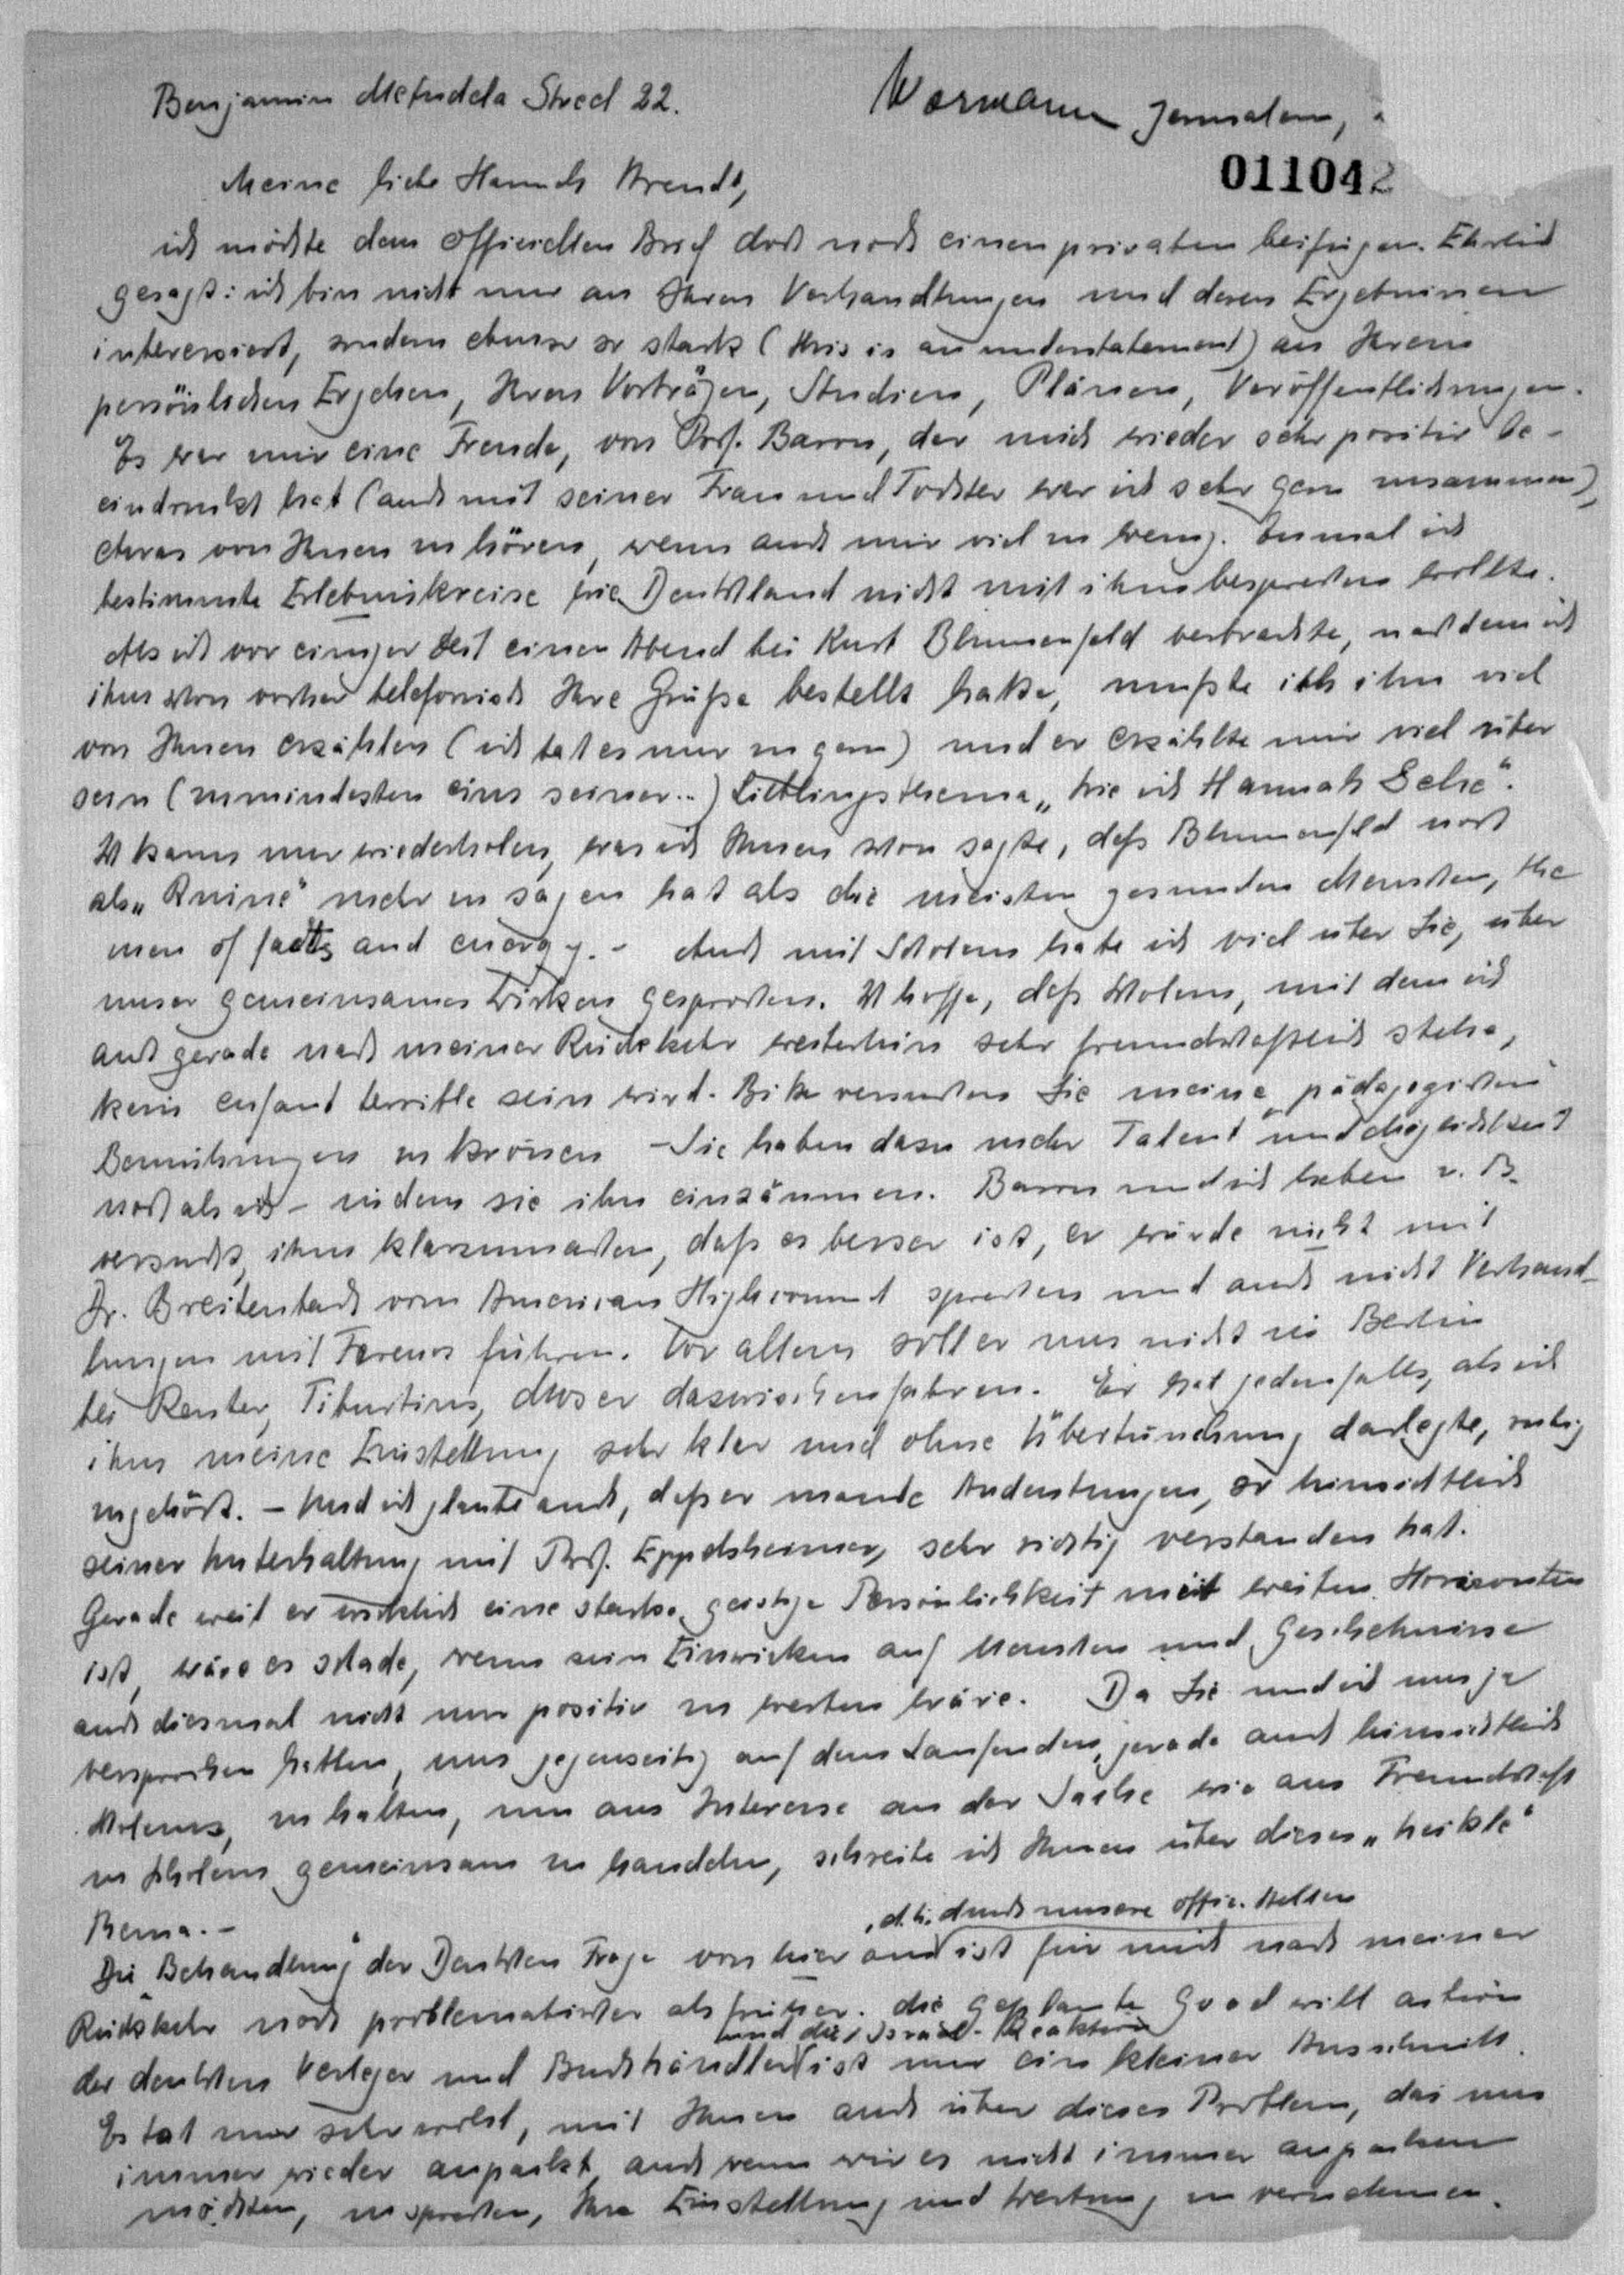 Benjamin Metudela Street 22.
Wormann Jerusalem,
011042
Meine liebe Hannah Arendt,
ich möchte dem officiellen Brief doch noch einen privaten beifügen. Ehrlich
gesagt: ich bin nicht nur an Ihren Verhandlungen und deren Ergebnissen
interessiert, sondern ebenso so stark (this is an understatement) an Ihrem
persönlichen Ergehen, Ihren Vorträgen, Studien, Plänen, Veröffentlichungen.
Es war mir eine Freude, von Prof. Baron, der mich wieder sehr positiv be-
eindruckt hat (auch mit seiner Frau und Tochter war ich sehr gern zusammen),
etwas von Ihnen zu hören, wenn auch nur viel zu wenig. Zumal ich
bestimmte Erlebniskreise wie Deutschland nicht mit ihm besprechen wollte.
Als ich vor einiger Zeit einen Abend bei Kurt Blumenfeld verbrachte, nachdem ich
ihm schon vorher telefonisch Ihre Grüße bestellt hatte, mußte ich ihm viel
von Ihnen erzählen (ich tat es nur zu gern) und er erzählte mir viel über
sein (zumindesten eins seiner..) Lieblingsthema „wie ich Hannah sehe".
Ich kann nur wiederholen, was ich Ihnen schon sagte, daß Blumenfeld noch
als „Ruine" mehr zu sagen hat als die meisten gesunden Menschen, the
men of facts and energy. - Auch mit Scholem habe ich viel über Sie, über
unser gemeinsames Wirken gesprochen. Ich hoffe, daß Scholem, mit dem ich
auch gerade nach meiner Rückkehr weiterhin sehr freundschaftlich stehe,
kein enfant terrible sein wird. Bitte versuchen Sie meine „pädagogischen"
Bemühungen zu krönen - Sie haben dazu mehr Talent und Möglichkeit
noch als ich - indem sie ihn einzäunen. Baron und ich haben z. B.
versucht, ihm klarzumachen, daß es besser ist, er würde nicht mit
Dr. Breitenbach vom American Highcommd sprechen und auch nicht Verhand-
lungen mit Ferencz führen. Vor allem soll er uns nicht in Berlin
bei Reuter, Tiburtius, Moser dazwischenfahren. Er hat jedenfalls, als ich
ihm meine Einstellung sehr klar und ohne Übertünchung darlegte, ruhig
zugehört. - Und ich glaube auch, daß er manche Andeutungen, so hinsichtlich
seiner Unterhaltung mit Prof. Eppelsheimer, sehr richtig verstanden hat.
Gerade weil er wirklich eine starke, geistige Persönlichkeit mit weiten Horizonten
ist, wäre es schade, wenn sein Einwirken auf Menschen und Geschehnisse
auch diesmal nicht nur positiv zu werten wäre. Da Sie und ich uns ja
versprochen hatten, uns gegenseitig auf dem Laufenden, gerade auch hinsichtlich
Scholems, zu halten, um aus Interesse an der Sache wie aus Freundschaft
zu Scholem gemeinsam zu handeln, schreibe ich Ihnen über dieses „heikle"
Thema. -
, d. h. durch unsere offic. Stellen
Die „Behandlung" der Deutschen Frage von hier aus ist für mich nach meiner
Rückkehr noch problematischer als früher. Die geplante Good will action
und die Israel-Reaktion
der deutschen Verleger und Buchhändler ist nur ein kleiner Ausschnitt.
Es tat mir sehr wohl, mit Ihnen auch über dieses Problem, das uns
immer wieder anpackt, auch wenn wir es nicht immer anpacken
möchten, zu sprechen, Ihre Einstellung und Wertung zu vernehmen.